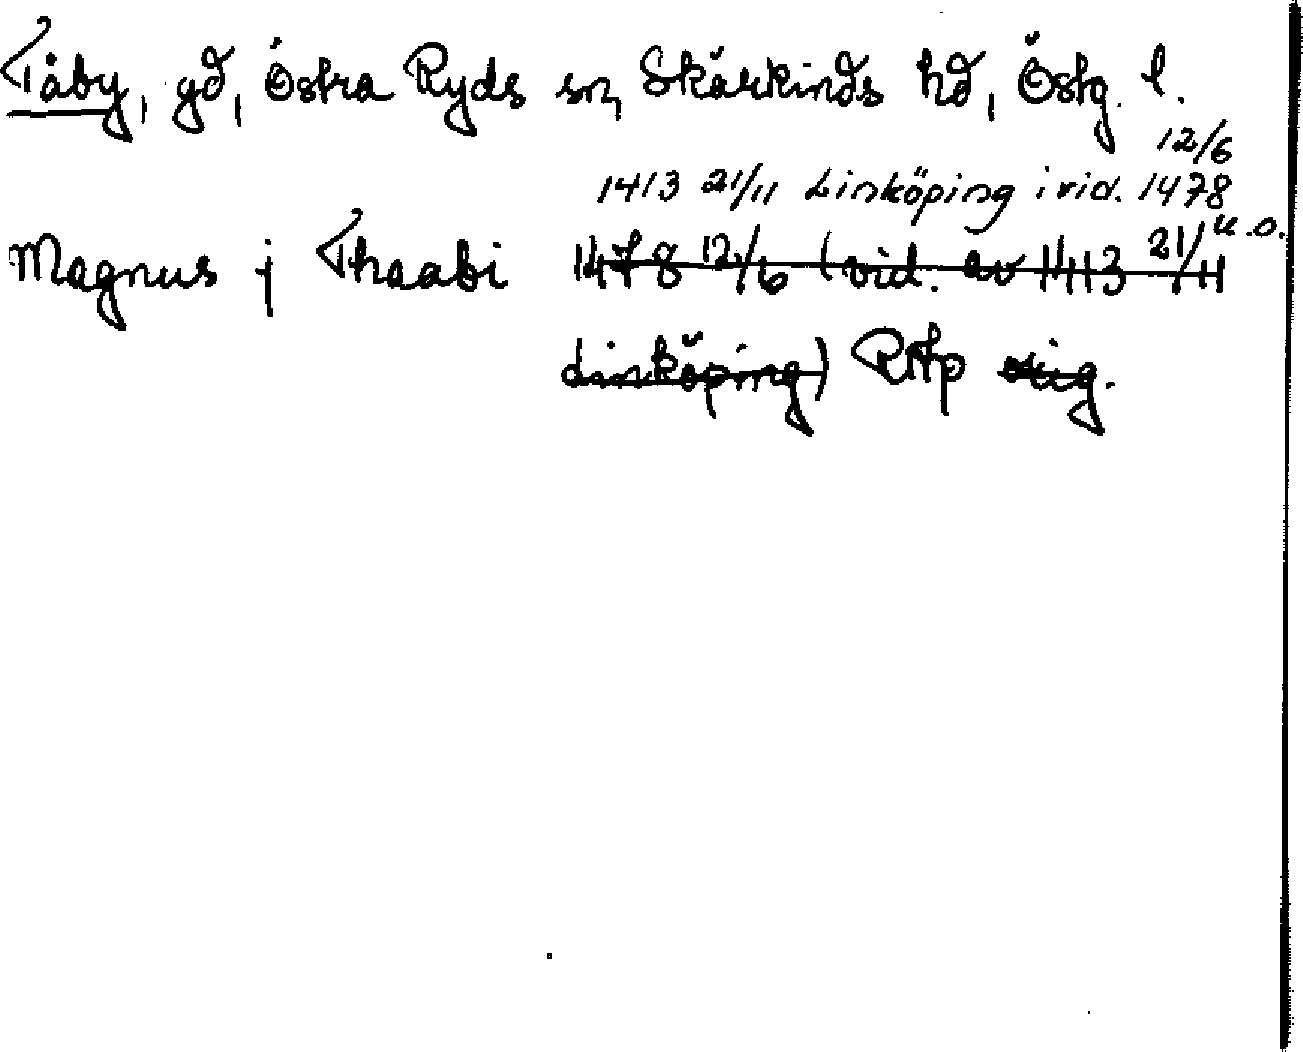 Tåby, gd, Östra Ryds sn, Skärkinds hd, Östg. l.
12/6
1413 21/11 Linköping i vid. 1478
u.o.
Magnus j Thaabi 1478 12/6 (vid. av 1413 21/11
Linköping) RAp orig.